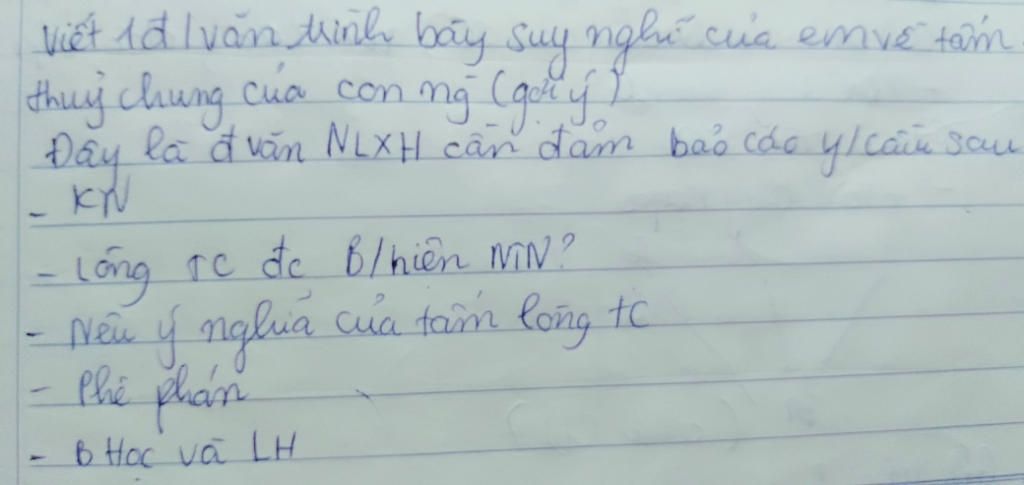 Viết 1đ/văn trình bày suy nghĩ của em về tấm
thuỷ chung của con ng (gợi ý)
Đây là đ văn NLXH cần đảm bảo các y/cầu sau
- KN
- Lòng TC đc B/hiện NTN?
- Nêu ý nghĩa của tấm lòng tc
- Phê phán
- B Học và LH